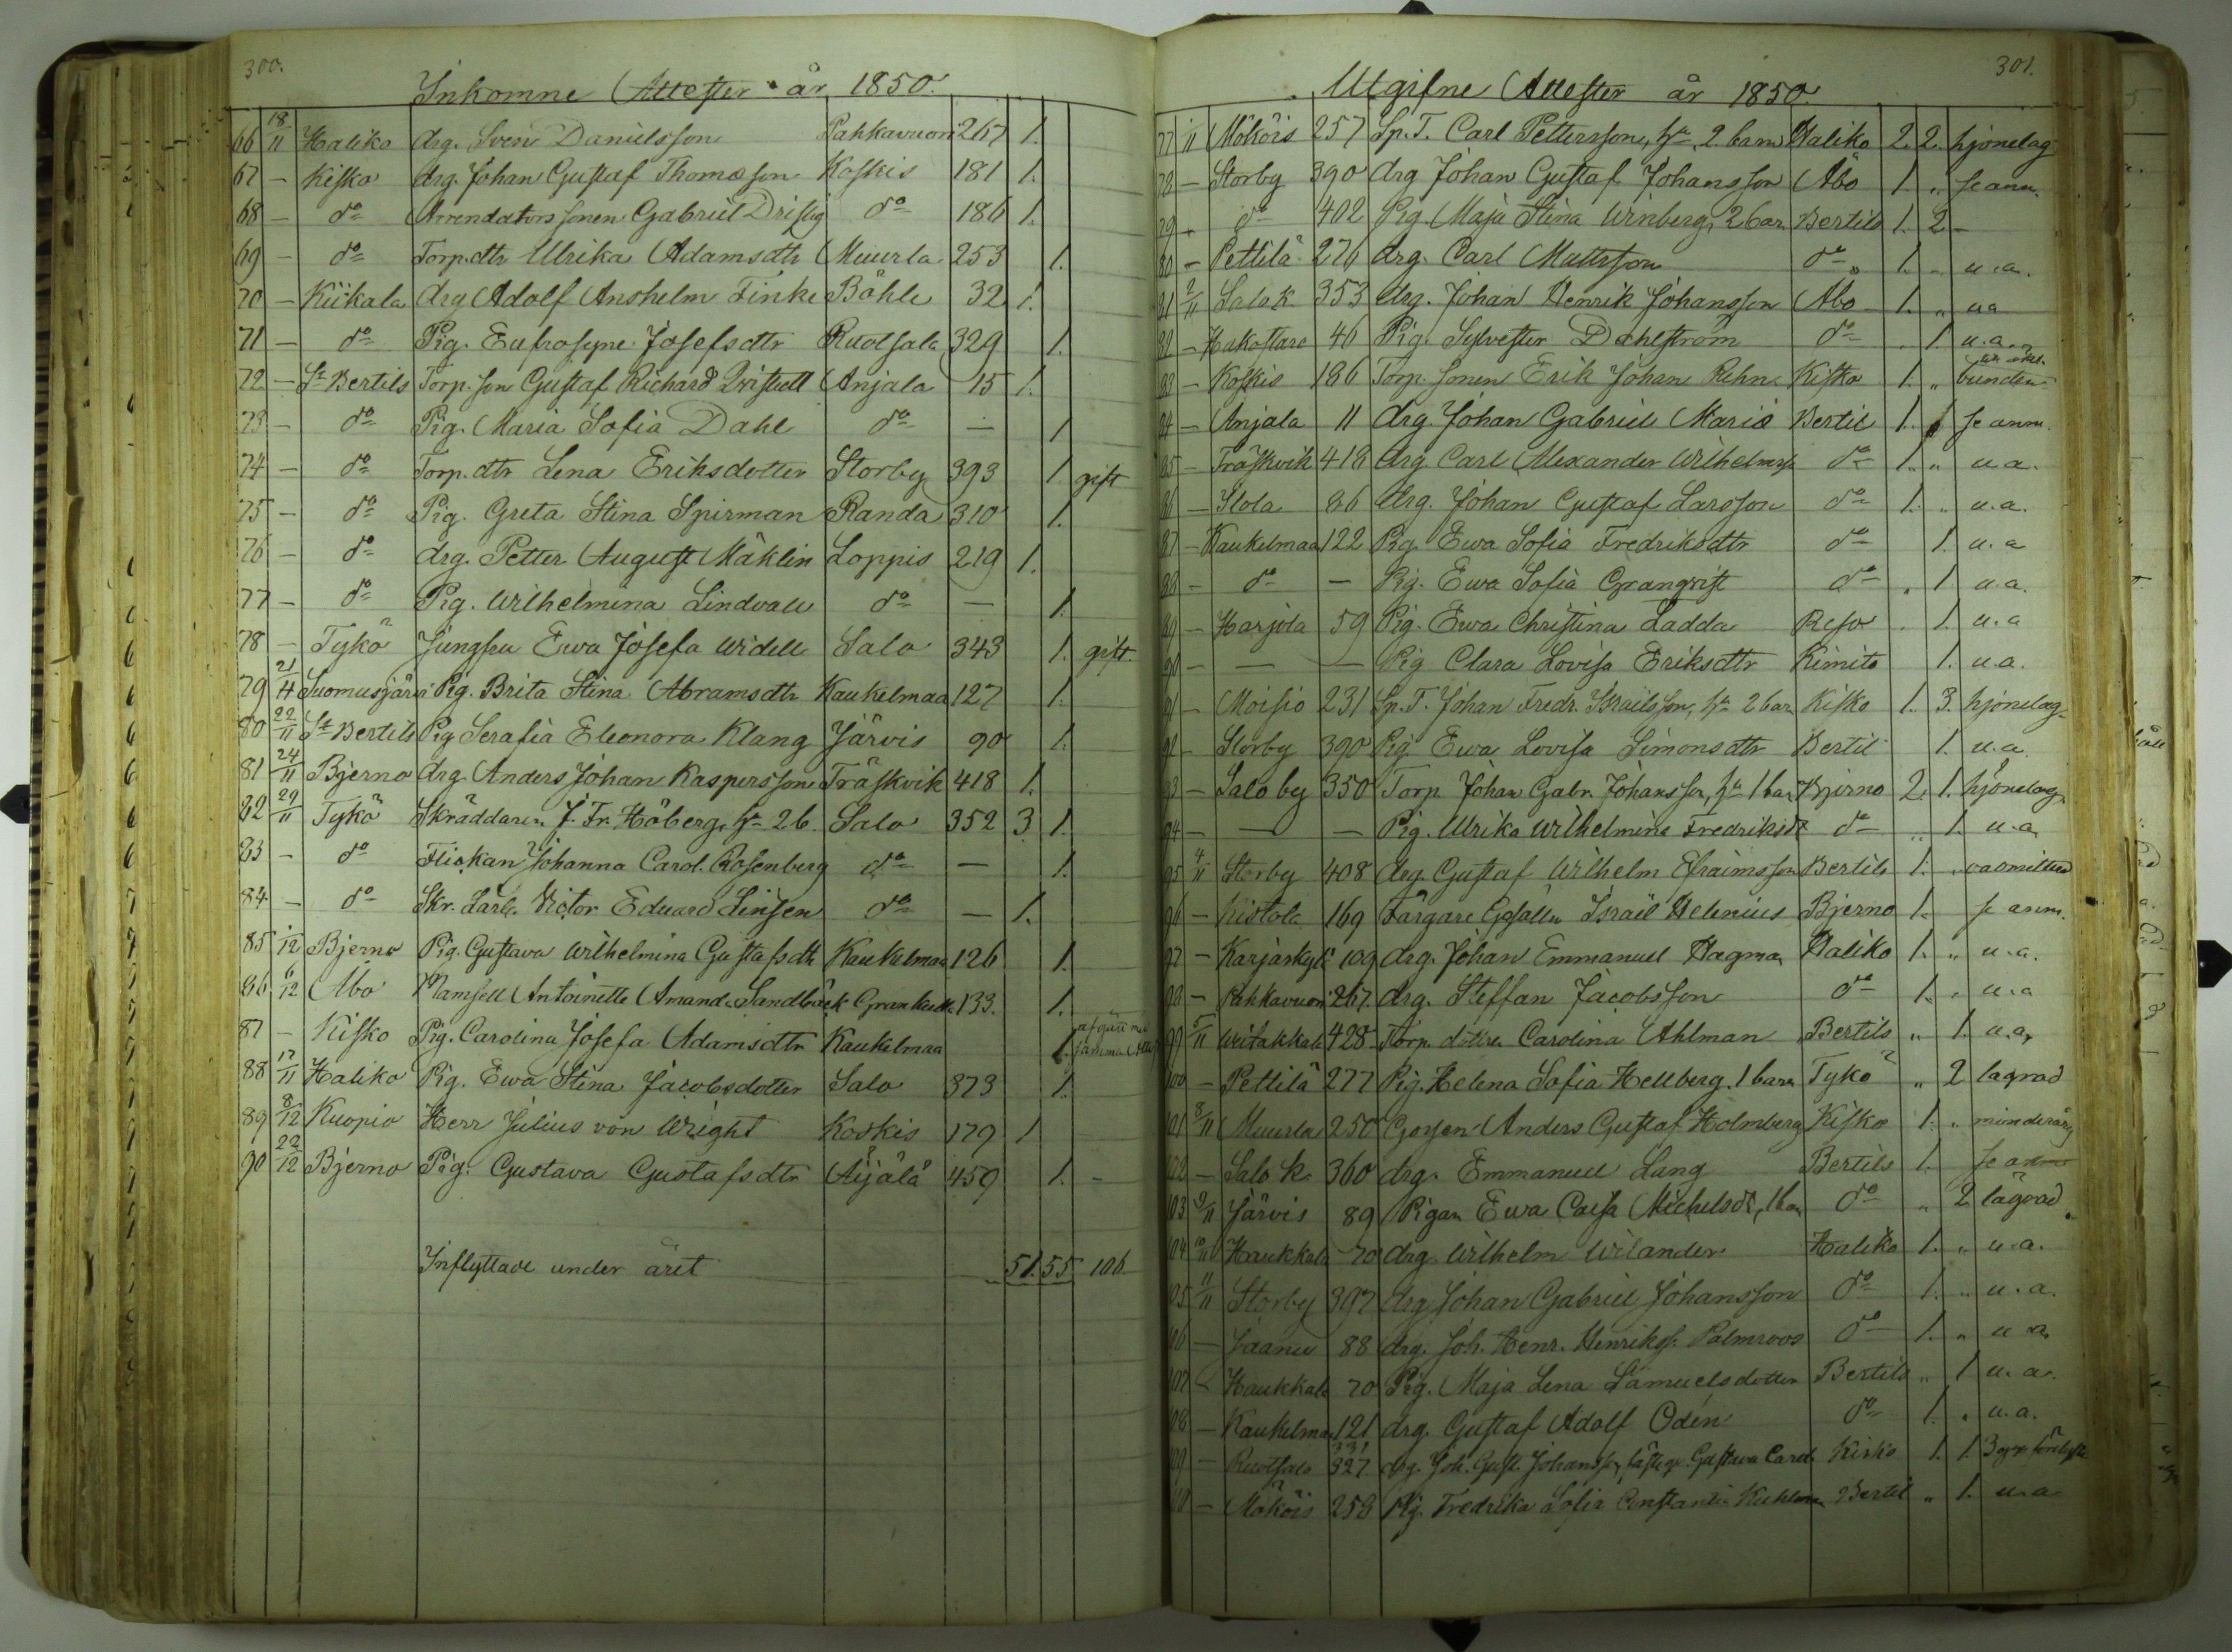 300.
Inkomne Attester år 1850.
66 18/11 Haliko drg. Sven Danielsson Pahkavuori 267 1.
67 — Kisko drg. Johan Gustaf Thomasson Koskis 181 1.
68 — do Arrendators sonen Gabriel Dristig do 186 1.
69 — do Torp.dtr Ulrika Adamsdtr Muurla 253 1.
70 — Kiikala drg Adolf Anshelm Finke Böhle 32 1.
71 — do Pig. Eufrosyne Josefsdtr Ruotsala 329 1.
72 — St Bertils Torp. son Gustaf Richard Anjala 15 1.
73 — do Pig. Maria Sofia Dahl do — 1
74 — do Torp. dtr Lena Eriksdotter Storby 393 1. gift
75 — do Pig. Greta Stina Spirman Randa 310 1.
76 — do drg. Petter August Mäklin Loppis 219 1.
77 — do Pig. Wilhelmina Lindvall do — 1.
78 — Tykö Jungfru Ewa Josefa Widell Salo 343 1. gift.
79 21/11 Suomusjärvi Pig. Brita Stina Abramsdtr Kaukelmaa 127 1.
80 22/11 St Bertils Pig Serafia Eleonora Klang Järvis 90 1.
81 24/11 Bjerno drg. Anders Johan Kaspersson Träskvik 418 1.
82 29/11 Tykö Skräddaren J. Fr. Höberg, hu 2 b. Salo 352 3 1.
83 — do Flickan Johanna Carol. Rosenberg do — 1.
84 — do Skr. Lärl. Victor Eduard Linsen do — 1.
85 /12 Bjerno Pig. Gustava Wilhelmina Gustafsdtr Kaukelmaa 126 1.
86 6/12 Åbo Mamsell Antoinette Amanda Sandbäck 133. 1.
87 — Kisko Pig. Carolina Josefa Adamsdtr Kaukelmaa 1. samma
88 17/11 Haliko Pig. Ewa Stina Jacobsdotter Salo 373 1.
89 8/12 Kuopio Herr Julius von Wright Koskis 179 1
90 22/12 Bjerno Pig. Gustava Gustafsdtr Äijälä 459 1. -
Inflyttade under året 51. 55 106.
301.
Utgifne Attester år 1850.
77 1/11 Mökois 257 Sp. T. Carl Pettersson, hu, 2 barn Haliko 2. 2. hjonelag
78 — Storby 390 drg Johan Gustaf Johansson Åbo 1. „ se anm.
79 — do 402 Pig. Maja Stina Winberg, 2 bar. Bertils 1. 2 -
80 — Pettilä 276 drg. Carl Mattsson do 1. „ u.a.
81 2/11 Salo k. 353 drg. Johan Henrik Johansson Åbo 1. „ u a
82 — Hakostaro 46 Pig. Sylvester Dahlström do „ 1. u.a.
83 — Koskis 186 Torp. sonen Erik Johan Rehn Kisko 1. „ bunden
84 — Anjala 11 drg. Johan Gabriel Bertil 1. se anm.
85 — Träskvik 418 drg. Carl Alexander Wilhelmss. do 1. „ u.a.
86 — Ilola 86 drg. Johan Gustaf Larsson do 1. „ u.a.
87 — Kaukelmaa 122 Pig. Ewa Sofia Fredriksdtr do 1. u.a
88 — do — Pig. Ewa Sofia Granqvist do „ 1 u.a.
89 — Harjola 59 Pig. Ewa Christina Ladda Reso „ 1. u.a
90 — — — Pig Clara Lovisa Eriksdtr Kimito 1. u.a.
91 — Moisio 231 Sp. T. Johan Fredr. Israelsson, hu 2 bar. Kisko 1. 3. hjonelag
92 — Storby 390 Pig Ewa Lovisa Simonsdtr Bertil 1. u.a
93 — Salo by 350 Torp Johan Gabr. Johansson, hu 1 bar Bjerno 2. 1. hjonelag
94 — — — Pig. Ulrika Wilhelmina Fredriksdt do „ 1. u.a.
95 4/11 Storby 408 drg. Gustaf Wilhelm Efraimsson Bertils 1. „
96 — Kistola 169 Färgare Gesällen Israel Helenius Bjerno 1. se anm.
97 — Karjaskylä 109 drg. Johan Emmanuel Hagman Haliko 1. „ u.a.
98 — Pahkavuori 267. drg. Steffan Jacobsson do 1. „ u.a
99 5/11 Wiitakkala 428 Torp. dottren Carolina Ahlman Bertils „ 1. u.a.
100 — Pettilä 277 Pig. Helena Sofia Hellberg. 1 barn Tykö „ 2 lägrad
101 8/11 Muurla 250 Gossen Anders Gustaf Holmberg Kisko 1. „ minderårig
102 — Salo k. 360 drg. Emmanuel Lang Bertils 1. se anm
103 9/11 Järvis 89 Pigan Ewa Caisa Michelsdt, 1 bar do „ 2 lägrad.
104 10/11 Haukkala 70 drg. Wilhelm Wilander Haliko 1. „ u.a.
105 11/11 Storby 397 drg Johan Gabriel Johansson do 1. „ u.a.
106 — Jaanu 88 drg. Joh. Henr. Henrikss. Palmroos do 1. „ u a.
107 — Haukkala 70 Pig. Maja Lena Samuelsdotter Bertils „ 1 u.a.
108 — Kaukelmaa 121 drg. Gustaf Adolf Odén do 1. „ u.a.
109 — Ruotsala 331 327 drg. Joh. Gust. Johansson, Gustava Carol. Kisko 1. 1. 3
110 — Mökois 258 Pig. Fredrika Sofia Constantia Kuhlman Bertil „ 1. u.a